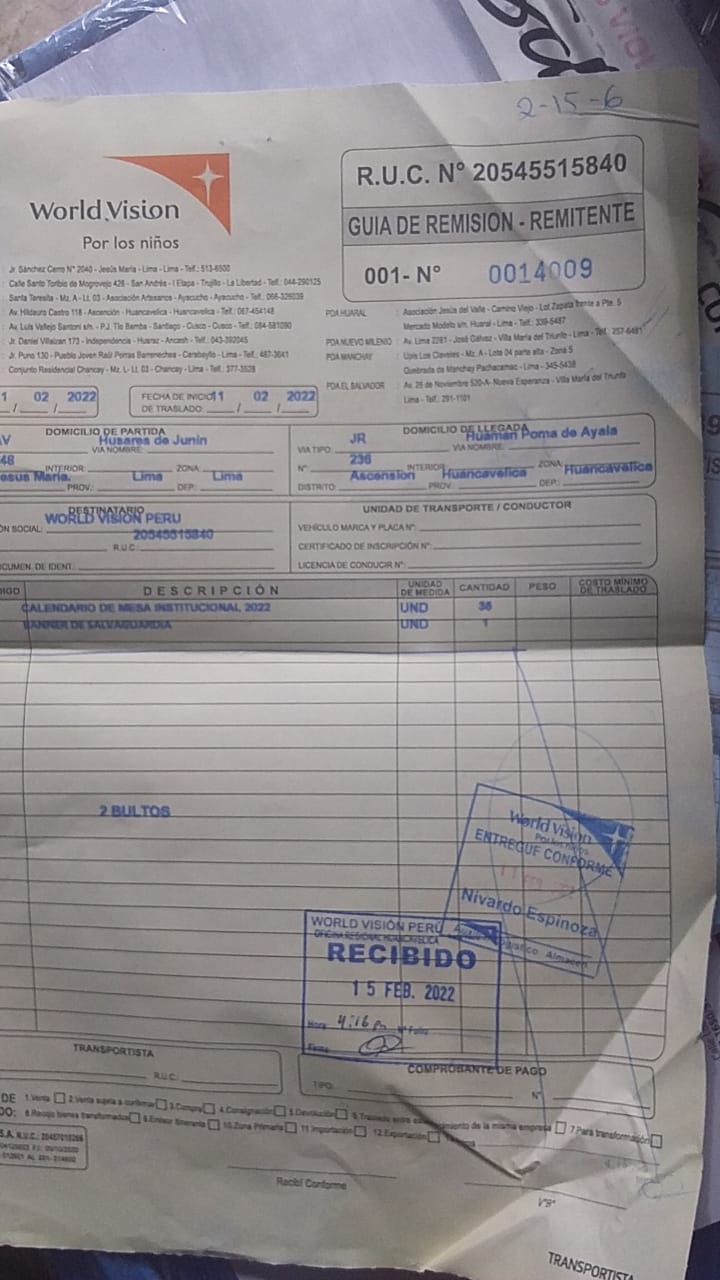 2-15-6
World Vision
Por los niños
R.U.C. Nº 20545515840
GUIA DE REMISION - REMITENTE
001- Nº 0014009
Jr. Sánchez Cerro N° 2040 - Jesús María - Lima - Lima - Telf.: 513-6500
Calle Santo Toribio de Mogrovejo 428 - San Andrés - I Etapa - Trujillo - La Libertad - Telf.: 044-290125
Santa Teresita - Mz. A - Lt. 03 - Asociación Artesanos - Ayacucho - Ayacucho - Telf.: 066-326039
Av. Hildauro Castro 118 - Ascención - Huancavelica - Huancavelica - Telf.: 067-454148
Av. Luis Vallejo Santoni s/n. - P.J. Tío Bamba - Santiago - Cusco - Cusco - Telf.: 084-581090
Jr. Daniel Villaizan 173 - Independencia - Huaraz - Ancash - Telf.: 043-392045
Jr. Puno 130 - Pueblo Joven Raúl Porras Barrenechea - Carabayllo - Lima - Telf.: 487-3641
Conjunto Residencial Chancay - Mz. L - Lt. 03 - Chancay - Lima - Telf.: 377-3528
PDA HUARAL : Asociación Jesús del Valle - Camino Viejo - Lot Zapata frente a Pte. 5
Mercado Modelo s/n. Huaral - Lima - Telf.: 339-5487
PDA NUEVO MILENIO : Av. Lima 2281 - José Gálvez - Villa María del Triunfo - Lima - Telf.: 257-6481
PDA MANCHAY : Upis Los Claveles - Mz. A - Lote 04 parte alta - Zona 5
Quebrada de Manchay Pachacamac - Lima - 345-5438
PDA EL SALVADOR : Av. 26 de Noviembre 520-A - Nueva Esperanza - Villa María del Triunfo
Lima - Telf.: 291-1101
1 / 02 / 2022
FECHA DE INICIO DE TRASLADO: 11 / 02 / 2022
DOMICILIO DE PARTIDA
AV Husares de Junin
VIA NOMBRE:
48
INTERIOR: ZONA:
esus María. Lima Lima
PROV.: DEP.:
DOMICILIO DE LLEGADA
VIA TIPO: JR VIA NOMBRE: Huaman Poma de Ayala
N°: 236 INTERIOR: ZONA:
DISTRITO: Ascension PROV.: Huancavelica DEP.: Huancavelica
DESTINATARIO
ÓN SOCIAL: WORLD VISION PERU
R.U.C. 20545515840
CUMEN. DE IDENT.:
UNIDAD DE TRANSPORTE / CONDUCTOR
VEHÍCULO MARCA Y PLACA N°:
CERTIFICADO DE INSCRIPCIÓN N°:
LICENCIA DE CONDUCIR N°:
DIGO DESCRIPCIÓN UNIDAD DE MEDIDA CANTIDAD PESO COSTO MÍNIMO DE TRASLADO
CALENDARIO DE MESA INSTITUCIONAL 2022 UND 36
BANNER DE SALVAGUARDIA UND 1
2 BULTOS
World Vision
Por los niños
ENTREGUE CONFORME
Nivardo Espinoza
Almacen
WORLD VISIÓN PERÚ
OFICINA REGIONAL HUANCAVELICA
RECIBIDO
15 FEB. 2022
Hora 4:16 pm Nº Folio
Firma
TRANSPORTISTA
R.U.C.:
COMPROBANTE DE PAGO
TIPO: N°
DE 1.Venta 2.Venta sujeta a confirmar 3.Compra 4.Consignación 5.Devolución 6.Traslado entre establecimiento de la misma empresa 7.Para transformación
DO: 8.Recojo bienes transformados 9.Emisor Itinerante 10.Zona Primaria 11.Importación 12.Exportación
S.A. R.U.C.:
Recibí Conforme
V°B°
TRANSPORTISTA